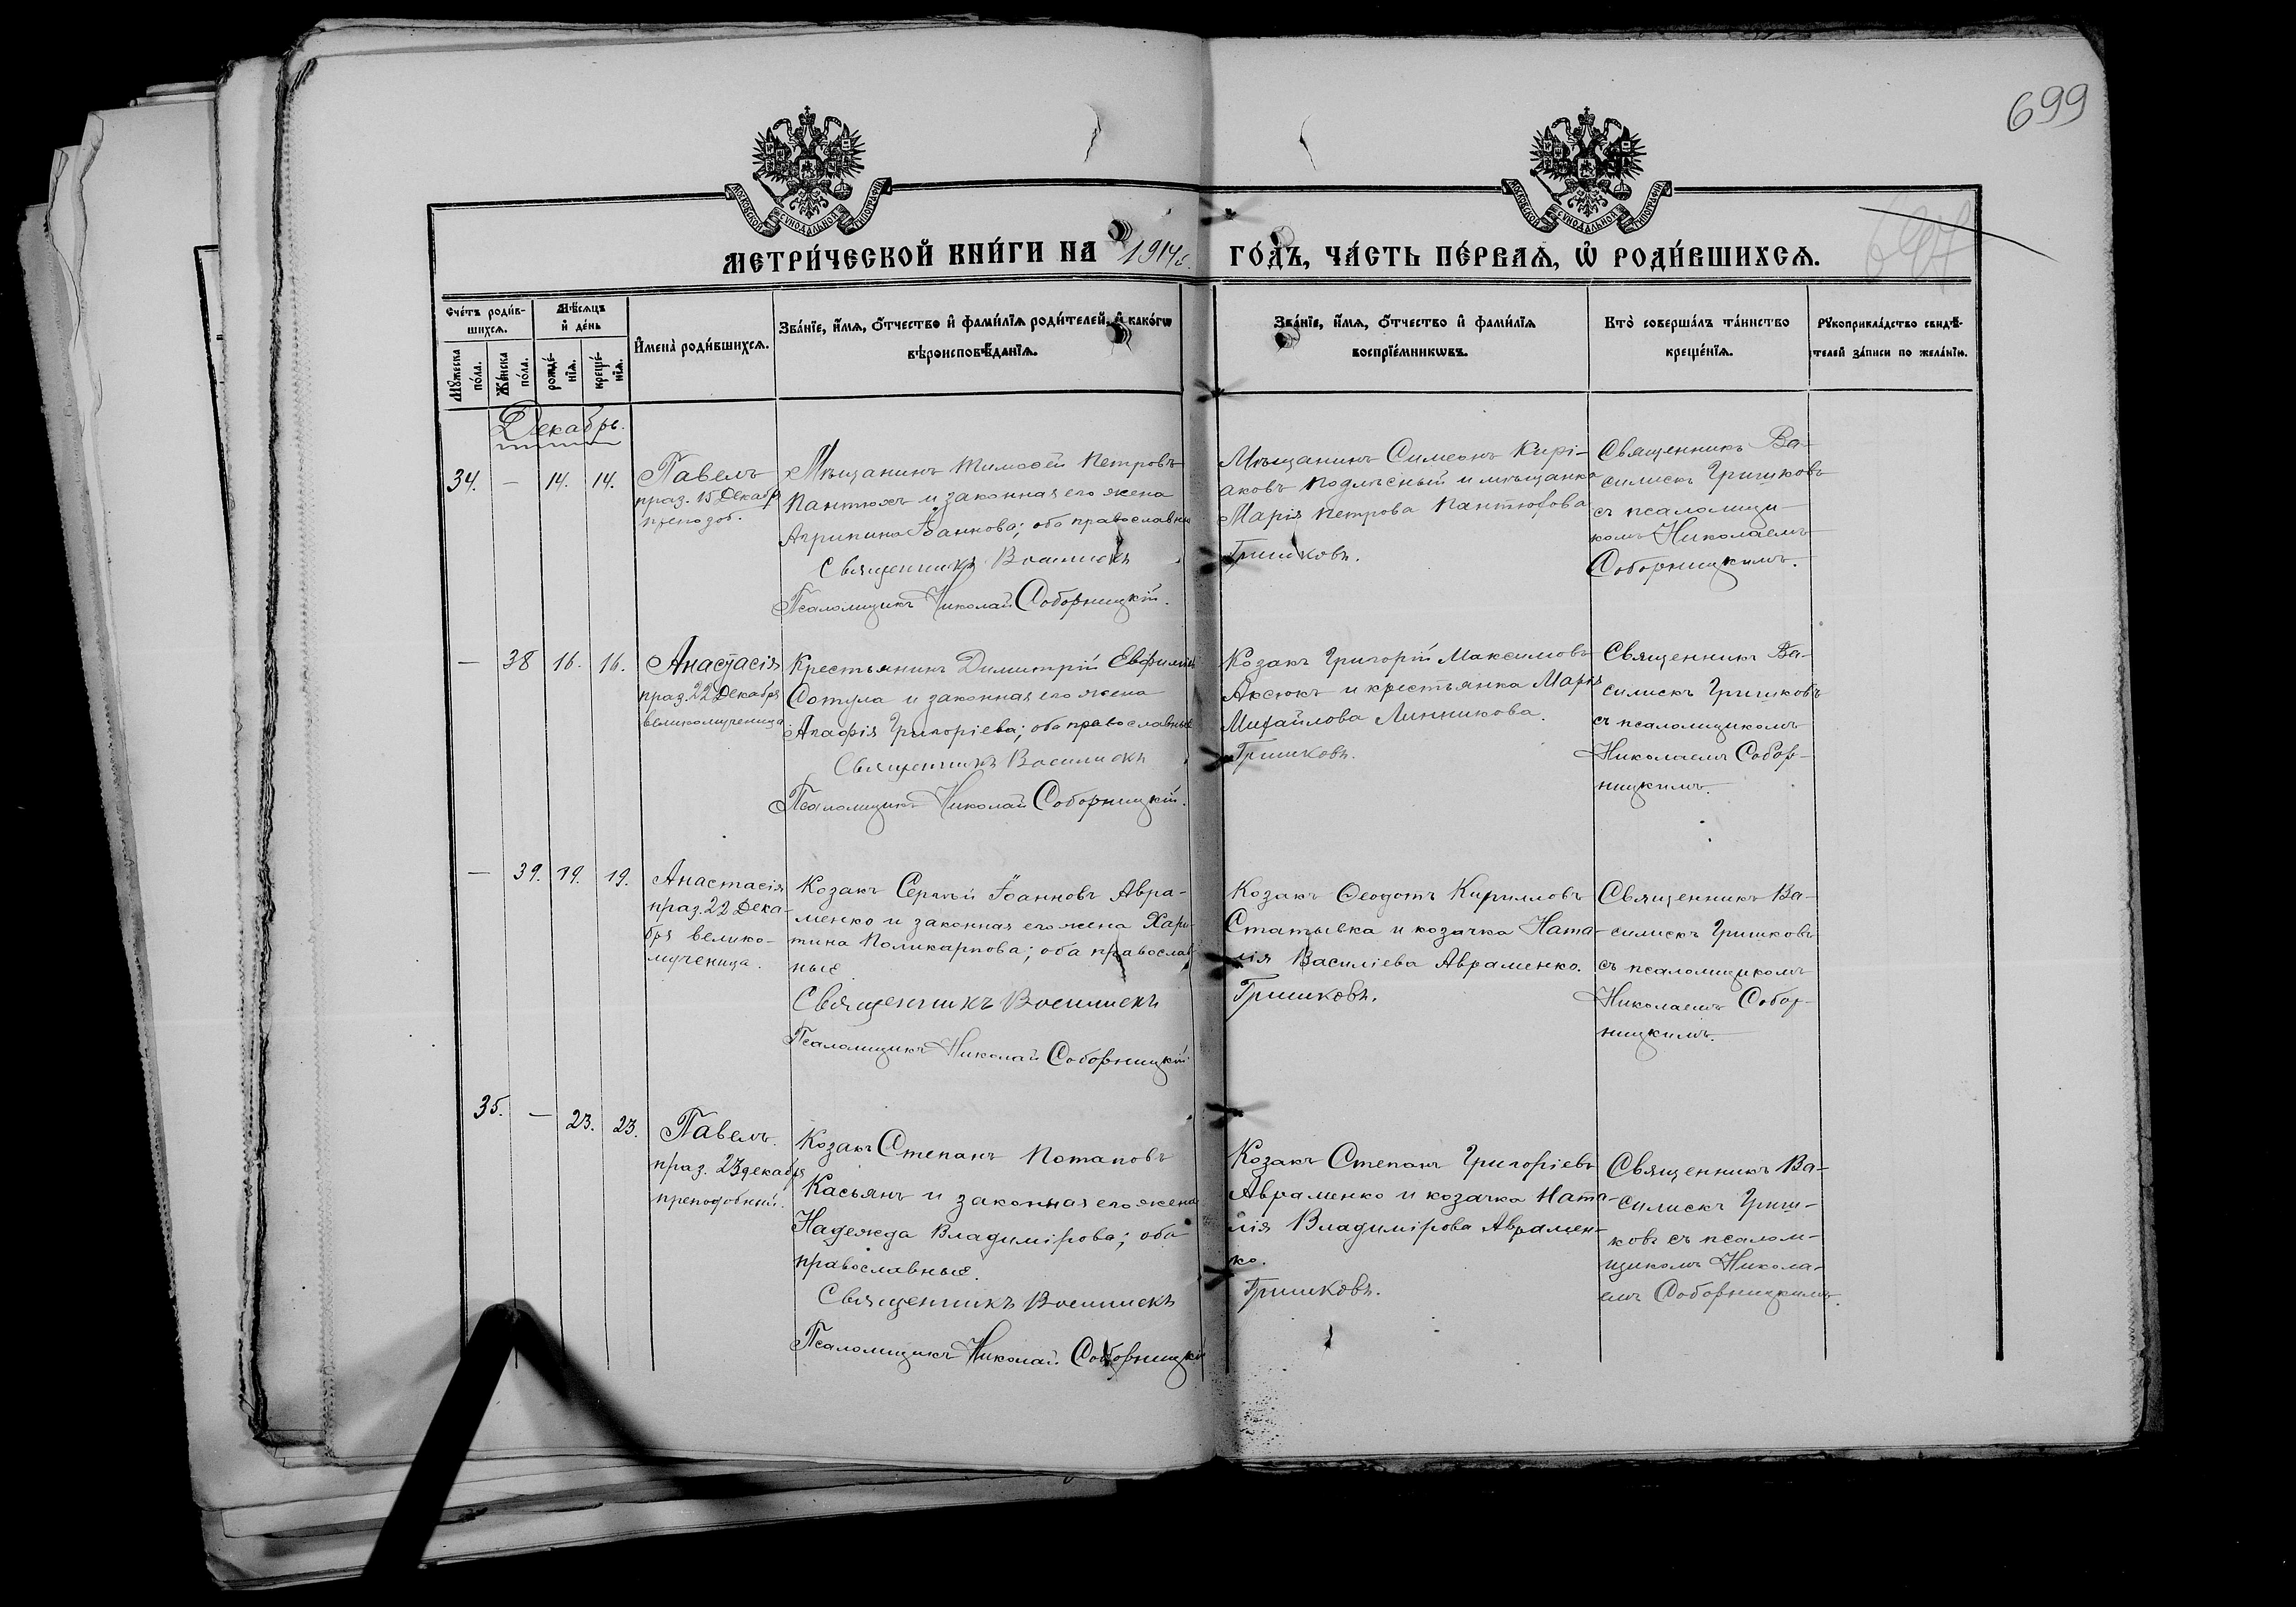 699
МОСКОВСКОЙ СѴНОДАЛЬНОЙ ТИПОГРАФІИ
МОСКОВСКОЙ СѴНОДАЛЬНОЙ ТИПОГРАФІИ
МЕТРИ́ЧЕСКОЙ КНИ́ГИ НА 1914 г. ГО́ДЪ, ЧА́СТЬ ПЕ́РВАѦ, Ѡ҆ РОДИ́ВШИХСѦ.
Сче́тъ роди́в-
шихсѧ.
Мѣ́сѧцъ
и҆ де́нь
И҆мена̀ роди́вшихсѧ.
Зва́нїе, и҆́мѧ, ѻ҆́тчество и҆ фами́лїѧ роди́телей, и҆ како́гѡ
вѣроисповѣ́данїѧ.
Зва́нїе, и҆́мѧ, ѻ҆́тчество и҆ фами́лїѧ
воспрїе́мникѡвъ.
Кто̀ соверша́лъ та́инство
креще́нїѧ.
Рꙋкоприкла́дство свидѣ́-
телей за́писи по жела́нїю.
Мꙋ́жеска
по́ла.
Же́нска
по́ла.
рожде́-
нїѧ.
креще́-
нїѧ.
Декабрь.
34. — 14. 14.
Павелъ
праз. 15 Декабр
препод.
Мѣщанинъ Тимоѳей Петровъ
Пантюхъ и законная его жена
Агрипина Іоаннова; оба православны
Священникъ Василискъ
Псаломщикъ Николай Соборницкій.
Мѣщанинъ Симеонъ Кирі-
аковъ Подлѣсный и мѣщанка
Марія Петрова Пантюхова
Гришковъ.
Священникъ Ва-
силискъ Гришковъ
съ псаломщи-
комъ Николаемъ
Соборницкимъ.
— 38 16. 16.
Анастасія
праз. 22 Декабря
великомученица
Крестьянинъ Димитрій Евфиміевъ
Сотула и законная его жена
Агафія Григоріева; оба православные
Священникъ Василискъ
Псаломщикъ Николай Соборницкій.
Козакъ Григорій Максимовъ
Аксюкъ и крестьянка Марія
Михайлова Линникова.
Гришковъ.
Священникъ Ва-
силискъ Гришковъ
съ псаломщикомъ
Николаемъ Собор-
ницкимъ.
— 39. 19. 19.
Анастасія
праз. 22 Дека-
бря велико-
мученица.
Козакъ Сергѣй Іоанновъ Авра-
менко и законная его жена Хари-
тина Поликарпова; оба православ-
ные.
Священникъ Василискъ
Псаломщикъ Николай Соборницкій
Козакъ Ѳеодотъ Кирилловъ
Статывка и козачка Ната-
лія Василіева Авраменко.
Гришковъ.
Священникъ Ва-
силискъ Гришковъ
съ псаломщикомъ
Николаемъ Собор-
ницкимъ.
35. — 23. 23.
Павелъ.
праз. 23 декабря
преподобный.
Козакъ Степанъ Потаповъ
Касьянъ и законная его жена
Надежда Владимірова; оба
православные.
Священникъ Василискъ
Псаломщикъ Николай Соборницкій
Козакъ Степанъ Григоріевъ
Авраменко и козачка Ната-
лія Владимірова Аврамен-
ко.
Гришковъ.
Священникъ Ва-
силискъ Гриш-
ковъ съ псалом-
щикомъ Никола-
емъ Соборницкимъ.